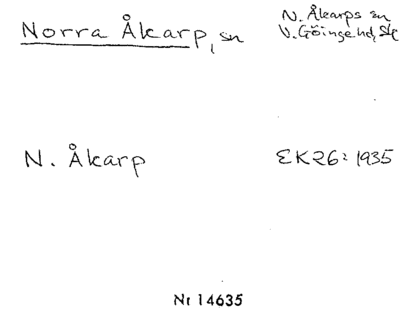 Norra Åkarp, sn
N. Åkarps sn
V. Göinge hd, Sk
N. Åkarp
EK26: 1935
Nr 14635